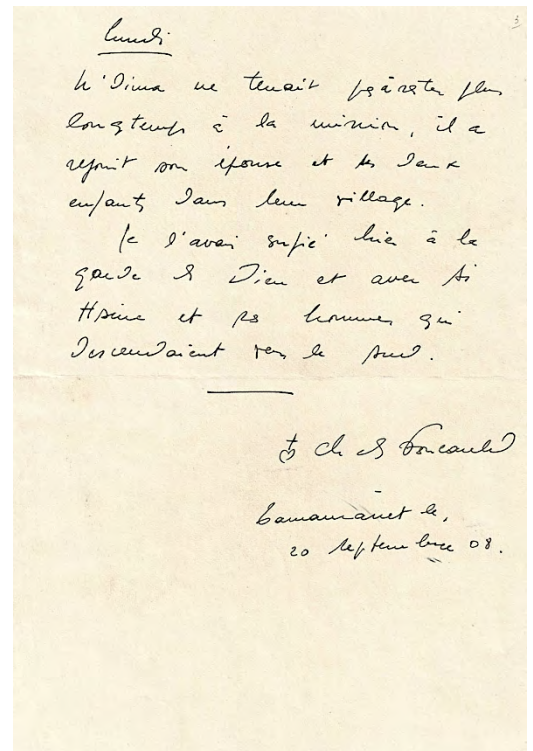 3
lundi
N'Dima ne tenait pas à rester plus
longtemps à la mission, il a
rejoint son épouse et ses deux
enfants dans leur village.
Je l'avai confié hier à la
garde de Dieu et avec Si
Hsine et ses hommes qui
descendaient vers le sud.
Ch de Foucauld
Tamanrasset le,
20 septembre 08.